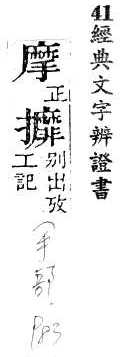 41經典文字辨證書
摩正
攠別出攷工記
手部